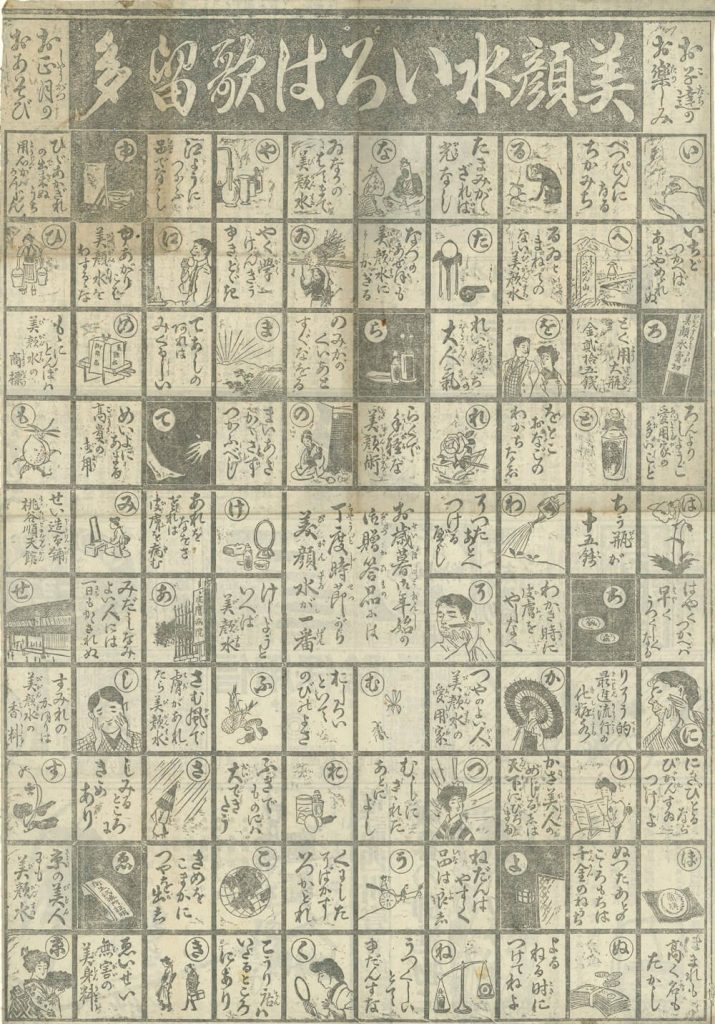 お子達の
お楽しみ
美顔水いろは歌留多
お正月の
おあそび
い
いちど
つかへば
あとやめれぬ
ろ
美顔水賣切
ろんより
しようこ
愛用家の
多いこと
は
はやくつかへば
早く
うつくしくなる
に
にきびとるなら
びがんすゐ
つけよ
ほ
ほまれも
高く名も
たかし
べつぴんに
なる
ちかみち
へ
とく用大瓶
金貳拾五銭
と
ちう瓶が
十五銭
ち
りそう的
最進流行の
化粧水
り
ぬつたあとの
こころもちは
千金のねうち
ぬ
る
るゐと
まねての
ない美顔水
を
をとこ
おなごの
わかちなし
わ
わかき時に
皮膚を
やしなへ
か
かさ美人の
めじるしは
よ
よる
ねる時に
つけてねよ
たまみがか
ざれば
光なし
た
れい嬢たち
大人氣
れ
そつたあとへ
つける
がよし
そ
つやのよい人
美顔水の
愛用家
つ
ねだんは
やすく
品は良し
ね
な
なつの
あせぼも
美顔水に
かぎる
ら
らくで
手軽な
美顔術
お歳暮お年始の
御贈答品には
丁度時節がら
美顔水が一番
む
むしに
さされた
あとによし
う
うつくしい
とて
申だんすな
ゐなかの
すみずみまで
美顔水
ゐ
のみかの
くいあと
すぐなをる
の
おしろい
といて
のびのよさ
お
そばかす
いろがとれ
く
や
やく學
けんきう
ゆきとどき
ま
まいあさ
かかさず
つかふべし
け
けしようと
いへば
美顔水
ふ
ふきで
ものにハ
こ
こうり店ハ
いたるところ
にあり
江ように
つかふ
品でなし
江
てあしの
あれは
みぐるしい
て
あれを
なをさ
荒れは
皮膚を病む
あ
皮膚病院
さむ風で
膚があれ
たら美顔水
さ
きめを
こまかに
つやを出す
き
ゆ
ゆあがり
にも
美顔水を
わするな
め
めいよに
あまる
高貴の
愛用
み
みだしなみ
よい人には
一日もかかされぬ
し
しみる
ところ
きめ
あり
ゑ
ゑいせい
無害の
美身料
ひびあかぎれ
の出来ぬ
うち
用心がかんじん
ひ
ももに
とんぼハ
美顔水の
商標
も
せい造本舗
桃谷順天館
せ
すみれの
かほりは
美顔水の
香料
す
京の美人
にも
美顔水
京